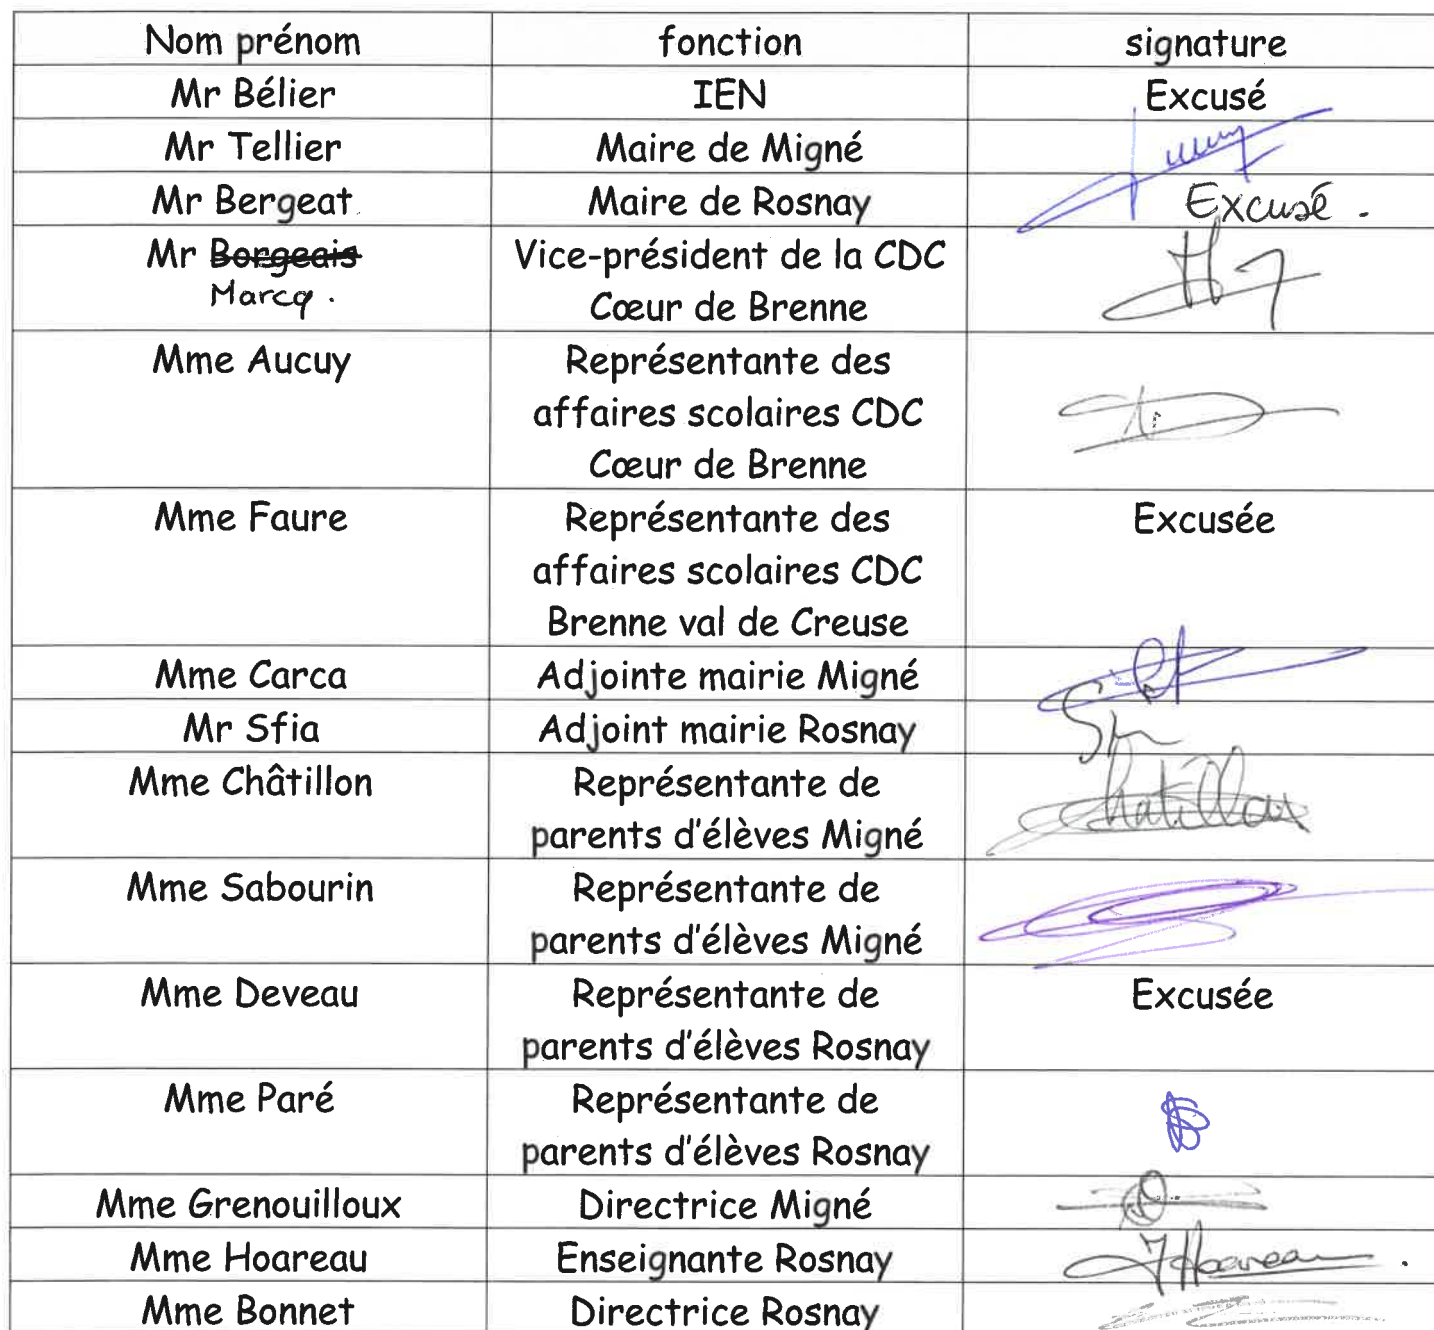 Nom prénom fonction signature
Mr Bélier IEN Excusé
Mr Tellier Maire de Migné
Mr Bergeat Maire de Rosnay Excusé.
Mr Borgeais Vice-président de la CDC
Marcq. Cœur de Brenne
Mme Aucuy Représentante des
affaires scolaires CDC
Cœur de Brenne
Mme Faure Représentante des Excusée
affaires scolaires CDC
Brenne val de Creuse
Mme Carca Adjointe mairie Migné
Mr Sfia Adjoint mairie Rosnay
Mme Châtillon Représentante de Chatillon
parents d'élèves Migné
Mme Sabourin Représentante de
parents d'élèves Migné
Mme Deveau Représentante de Excusée
parents d'élèves Rosnay
Mme Paré Représentante de
parents d'élèves Rosnay
Mme Grenouilloux Directrice Migné
Mme Hoareau Enseignante Rosnay Hoareau.
Mme Bonnet Directrice Rosnay